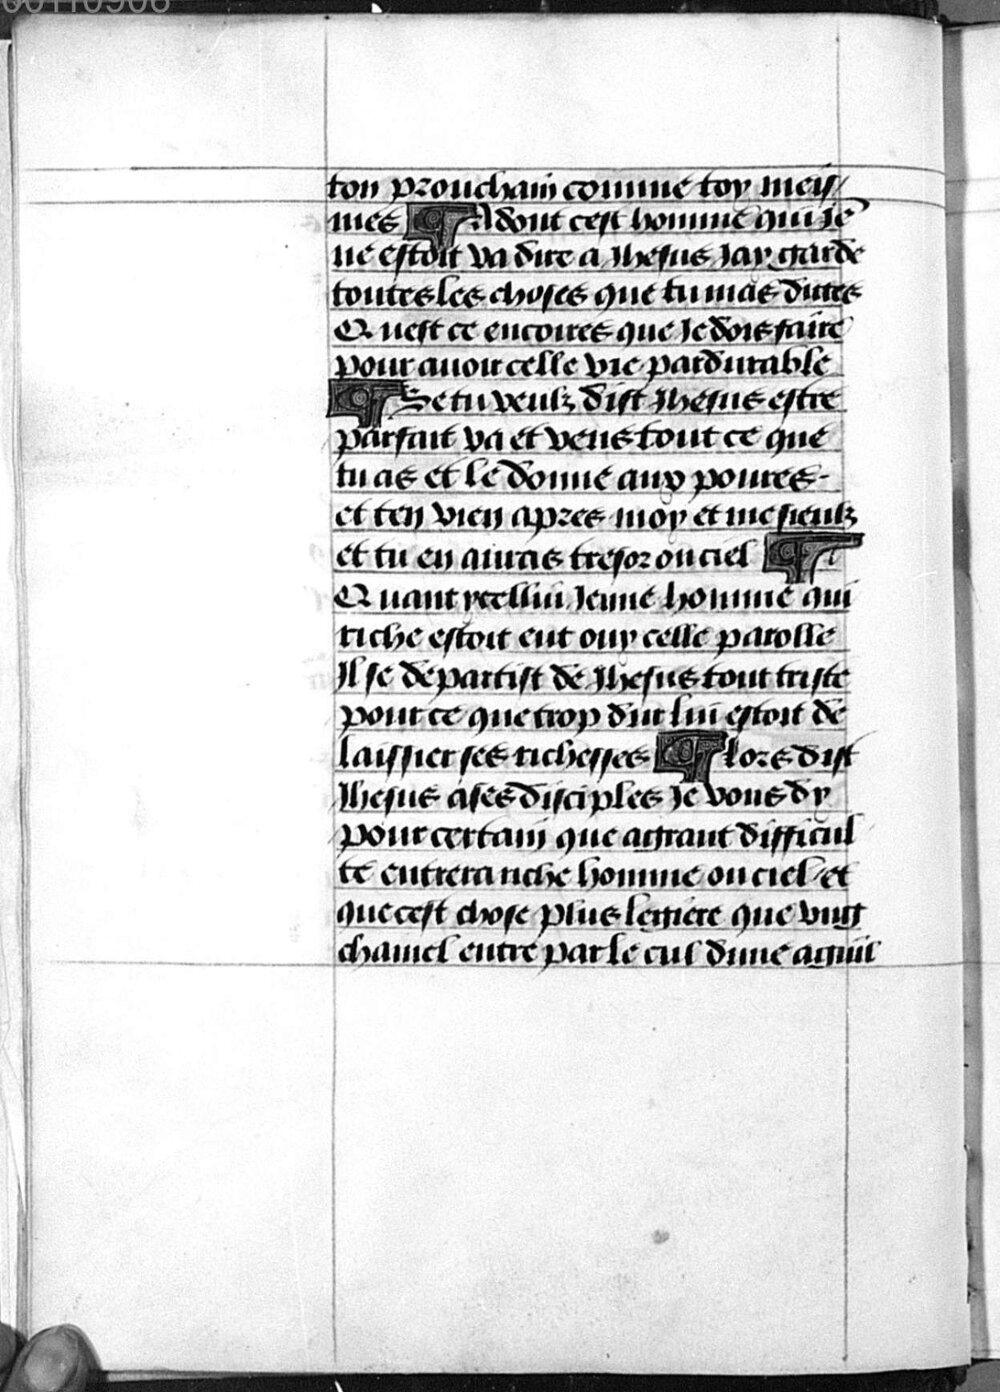 ton prouchain comme toy meis/
mes ¶ Adont cest homme qui Je
ne estoit va dire a Jhesus Jay garde
toutes les choses que tu mas dittes
Quest ce encoires que Je dois faire
pour auoir celle vie pardurable
¶ Se tu veulz dist Jhesus estre
parfait va et vens tout ce que
tu as et le donne aux poures-
et ten vien apres moy et me sieulz
et tu en auras tresor ou ciel ¶
Quant ycellui Jenne homme qui
riche estoit eut ouy celle parolle
Il se departist de Jhesus tout triste
pour ce que trop dur lui estoit de
laissier ses richesses ¶ lors dist
Jhesus a ses disciples Je vous dy
pour certain que a grant difficul
te entrera riche homme ou ciel/et
que cest chose plus legiere que vng
chamel entre par le cul dune aguil